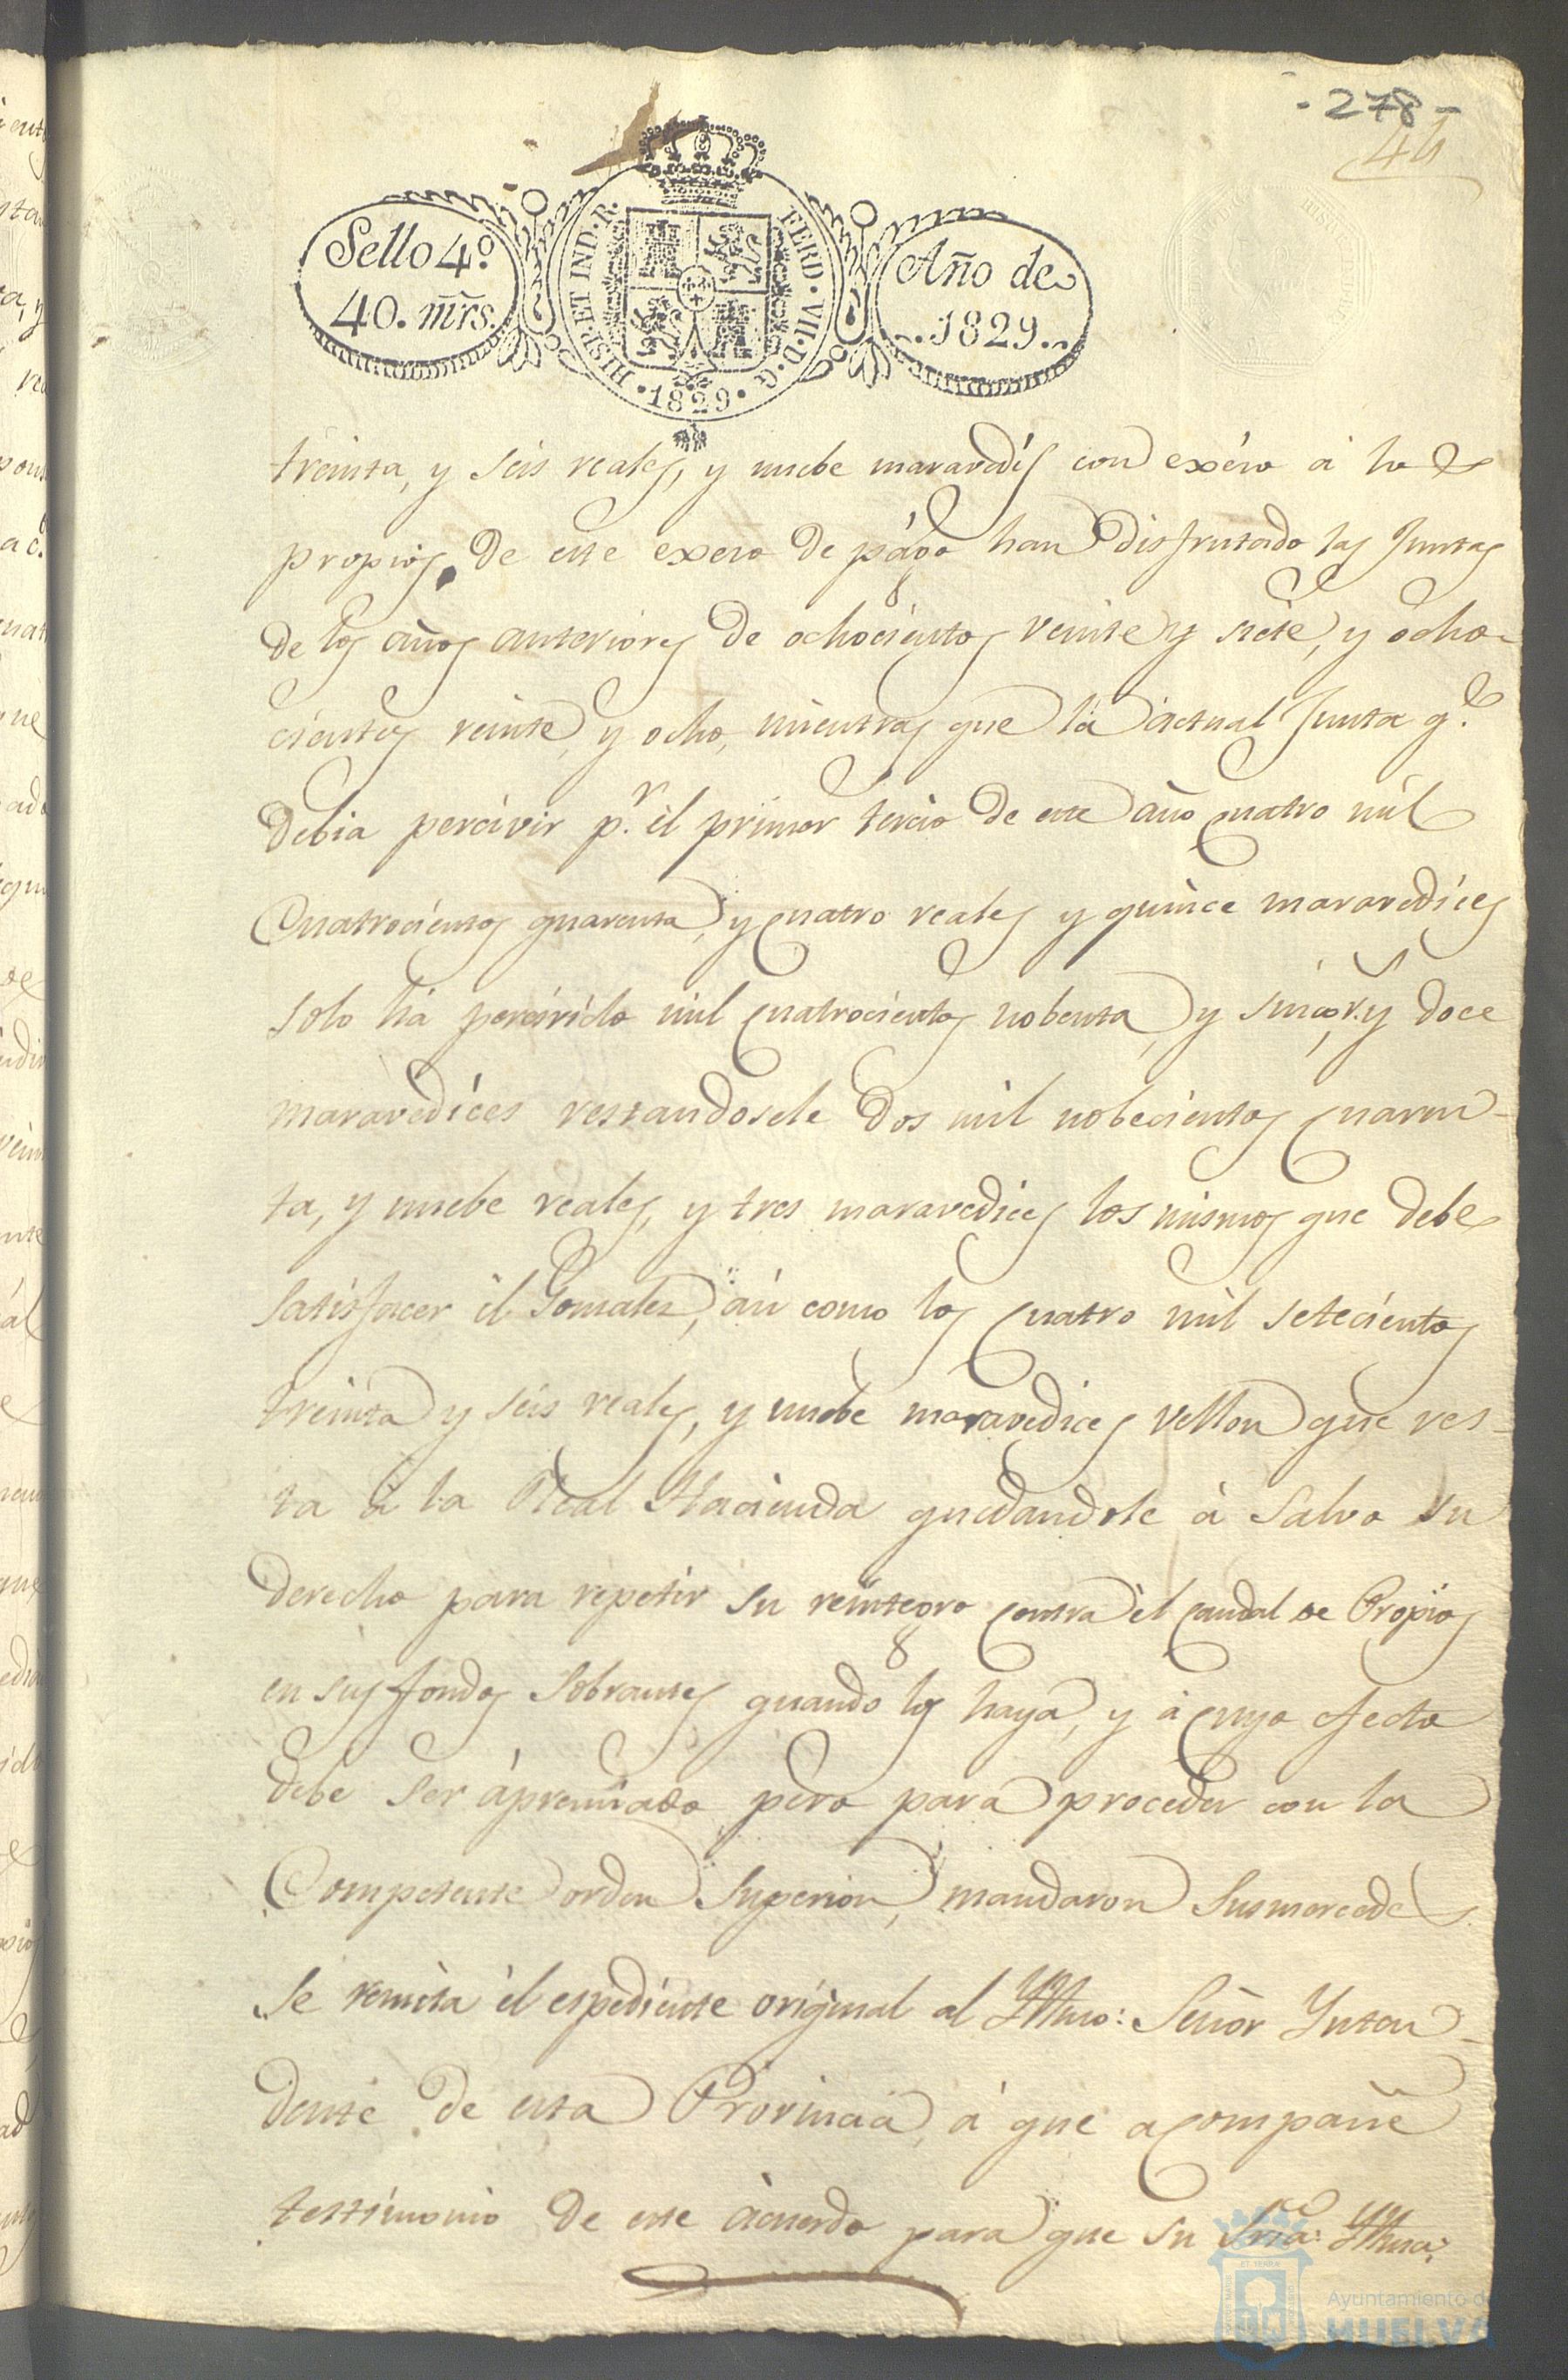 - 278 -
44
Sello 4.º
40. mrs.
HISP. ET IND. R.
FERD. VII. D. G.
1829
Año de
1829
treinta, y seis reales, y nuebe maravedis con exéso á los
propios. De este exeso de págo han disfrutado las Juntas
de los años anteriores de ochocientos veinte y siete, y ocho-
cientos veinte, y ocho, mientras que la actual Junta q.e
debia percivir p.r el primer tercio de este año quatro mil
Cuatrocientos quarenta, y quatro reales y quince maravedices
solo há percivido mil quatrocientos nobenta, y sinco r.s y doce
maravedices restandosele dos mil nobecientos quaren-
ta, y nuebe reales, y tres maravedices los mismos que debe
satisfacer el Gonzalez, asi como los quatro mil setecientos
treinta y seis reales, y nuebe maravedices vellon que res-
ta á la Real Hacienda quedandole á salvo su
derecho para repetir su reintegro contra el caudal de Propios
en sus fondos sobrantes quando los haya, y á cuyo efecto
debe ser ápremiado pero para proceder con la
Competente orden Superior, mandaron Susmercedes
se remita el espediente original al Yllmo: Señor Ynten-
dente de esta Provincia, á que acompañe
testimonio de este ácuerdo para que su Sria: Yllma:
Ayuntamiento de
HUELVA